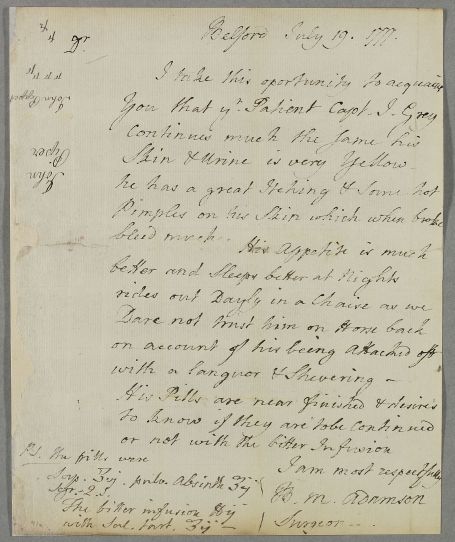 Belford July 19. 1777.
Dr.
I take this oportunity to acquaint
You that yr. Patient Capt. J. Grey
Continues much the same his
Skin & Urine is very Yellow
he has a great Itching & Some hot
Pimples on his Skin which when broke
bleed much. His Appetite is much
better and Sleeps better at Nights
rides out Dayly in a Chaise as we
Dare not trust him on Horse back
on account of his being Attacked oft
with a languor & Shevering –
His Pills are near finished & desires
to know if they are to be Continued
or not with the bitter Infusion
I am most respectfully
B. M. Adamson
Surgeon
P.S. the pills were
Sap. ʒij pulv. Absinth ʒij
The bitter infusion
with Sal. tart. ʒij
John Pepper
John Piper